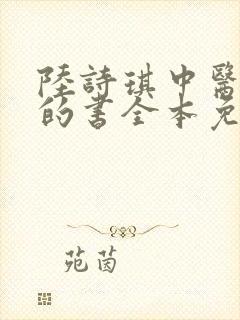 陸詩琪中醫
的書全本免
苑茵